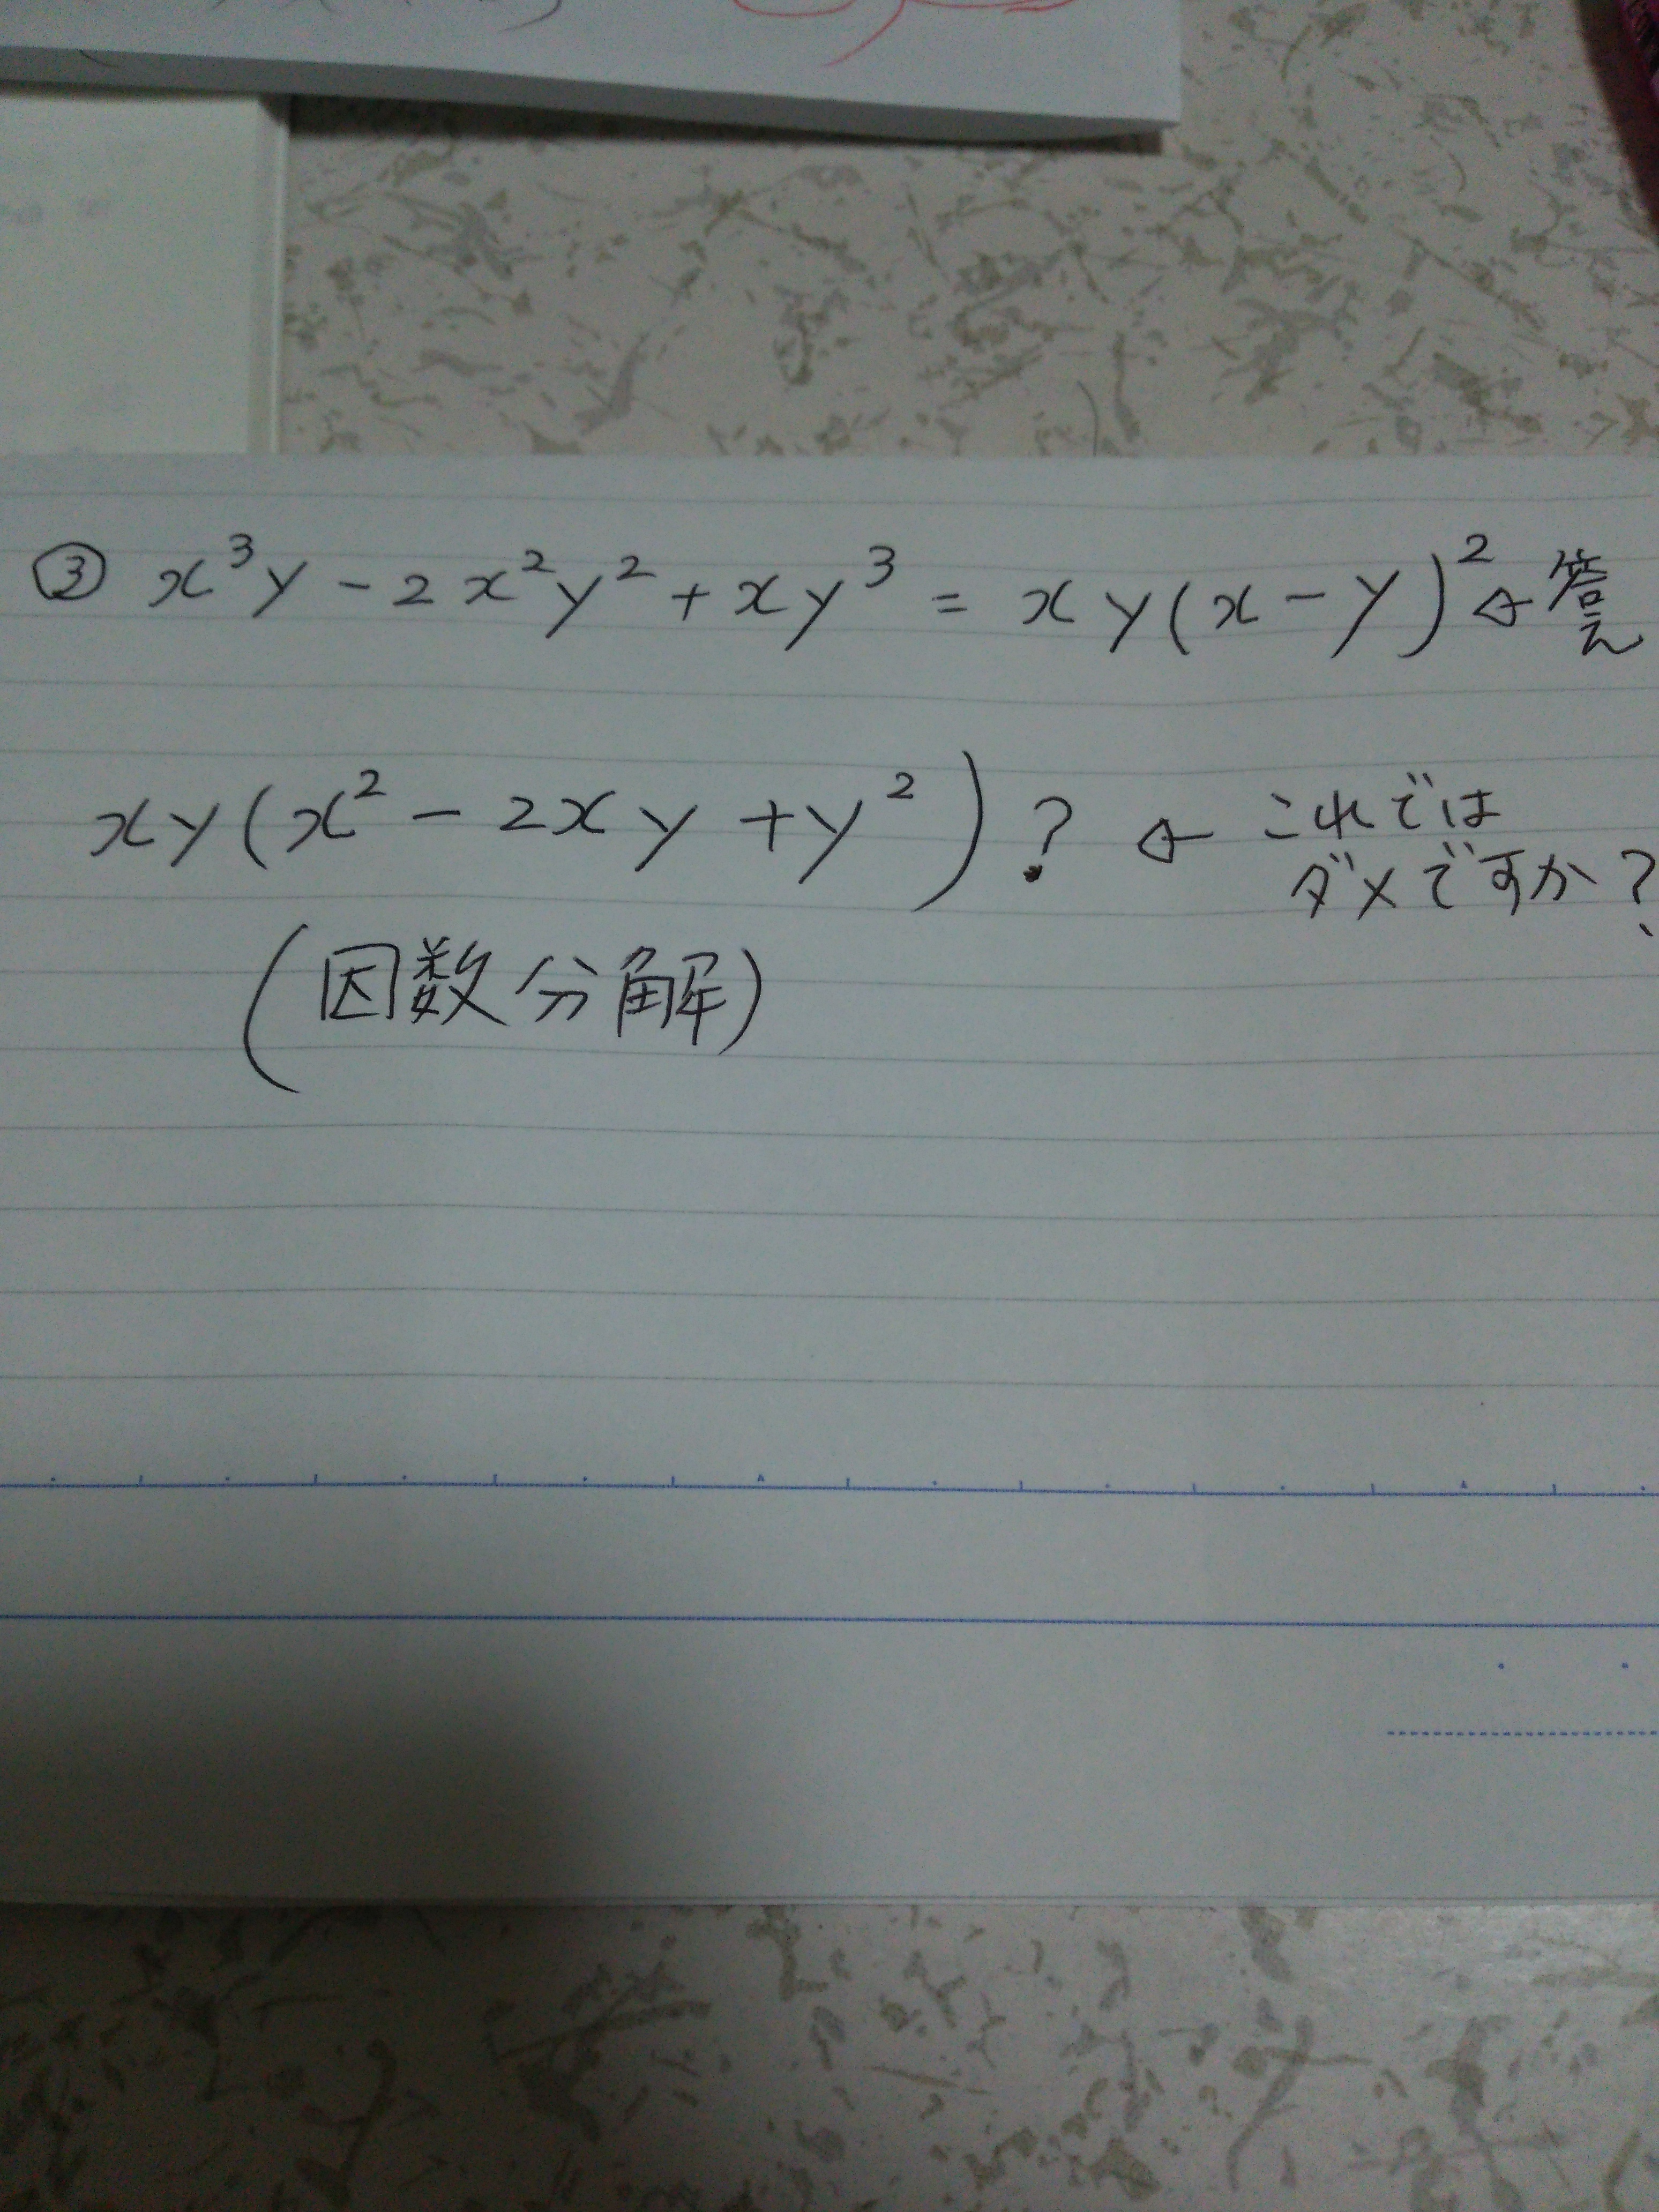 ③ x³y - 2x²y² + xy³ = xy(x - y)² ← 答え
xy(x² - 2xy + y²)? ← これでは
ダメですか?
(因数分解)